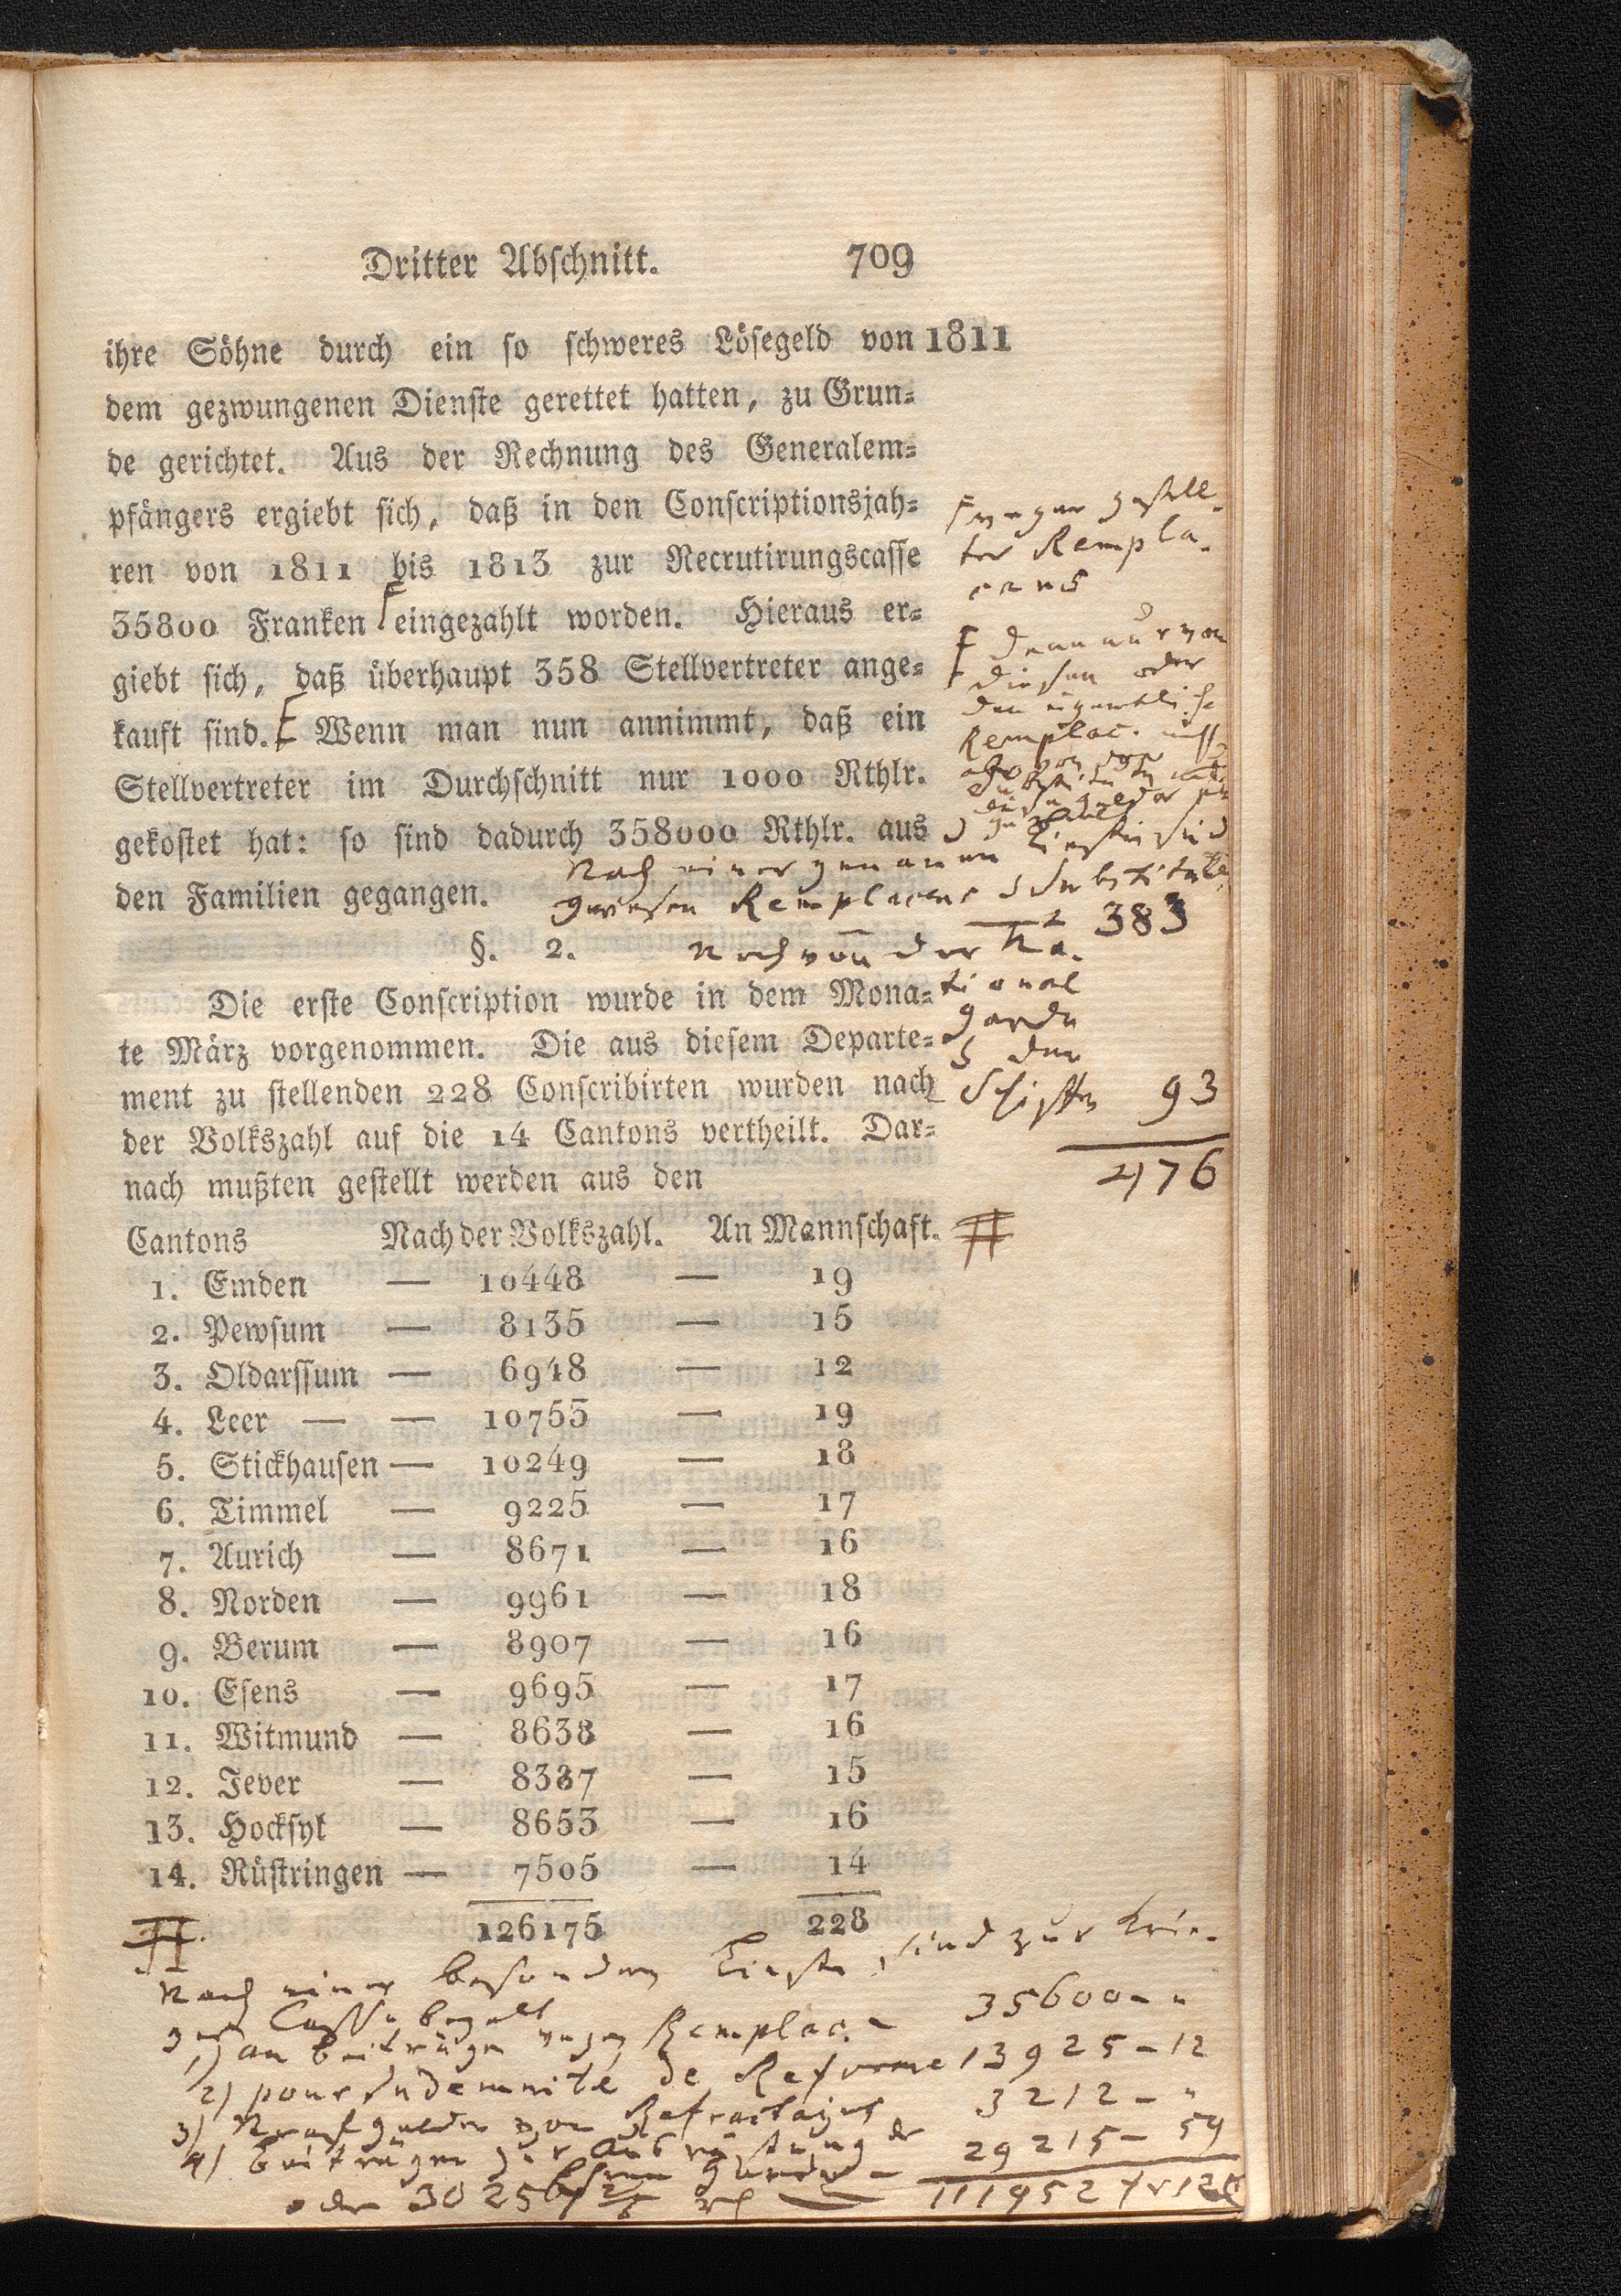 Dritter Abschnitt. 709
ihre Söhne durch ein so schweres Lösegeld von 1811
dem gezwungenen Dienste gerettet hatten, zu Grun-
de gerichtet. Aus der Rechnung des Generalem-
pfängers ergiebt sich, daß in den Conscriptionsjah-
ren von 1811 bis 1813 zur Recrutirungscasse
35800 Franken eingezahlt worden. Hieraus er-
giebt sich, daß überhaupt 358 Stellvertreter ange-
kauft sind. Wenn man nun annimmt, daß ein
Stellvertreter im Durchschnitt nur 1000 Rthlr.
gekostet hat: so sind dadurch 358000 Rthlr. aus
den Familien gegangen.
wegen gestell-
ter Rempla-
cans
denn nur von
diesen oder
den eigentliche
Remplac.
Nach einer genauen Liste sind
gewesen Remplacans Substitute
383
Noch von der Na-
tional
Garde
den
Schiffen 93
476
§. 2.
Die erste Conscription wurde in dem Mona-
te März vorgenommen. Die aus diesem Departe-
ment zu stellenden 228 Conscribirten wurden nach
der Volkszahl auf die 14 Cantons vertheilt. Dar-
nach mußten gestellt werden aus den
Cantons Nach der Volkszahl. An Mannschaft. #
1. Emden — 10448 — 19
2. Pewsum — 8135 — 15
3. Oldarssum — 6948 — 12
4. Leer — — 10755 — 19
5. Stickhausen — 10249 — 18
6. Timmel — 9225 — 17
7. Aurich — 8671 — 16
8. Norden — 9961 — 18
9. Berum — 8907 — 16
10. Esens — 9695 — 17
11. Witmund — 8638 — 16
12. Jever — 8387 — 15
13. Hocksyl — 8653 — 16
14. Rüstringen — 7505 — 14
126175 228
#.
Nach einer besondern Liste sind zur Krie-
ges Casse bezalt
1) an beiträgen wegen Remplac. - 35600 - "
2) pour Indemnité de Reforme 13925 - 12
3) von Refractairs 3212 - "
4) beiträgen zur Ausrüstung der
Garde - 29215 - 59
oder 30256